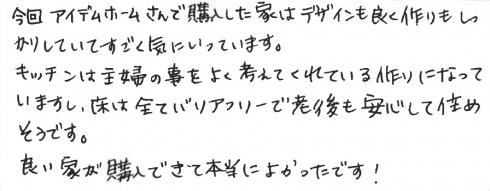 今回 アイデムホームさんで購入した家はデザインも良く作りもしっ
かりしていてすごく気にいっています。
キッチンは主婦の事をよく考えてくれている作りになって
いますし、床は全てバリアフリーで老後も安心して住め
そうです。
良い家が購入できて本当によかったです!